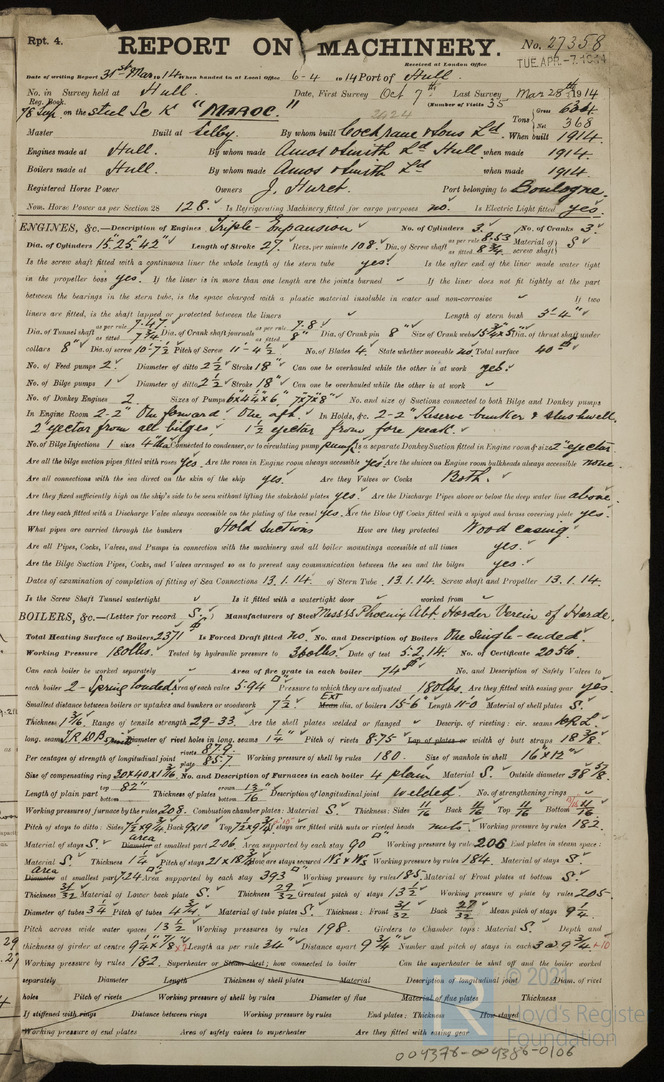 Rpt. 4.
REPORT ON MACHINERY.
No. 27358
Received at London Office
TUE. APR. -7. 1914
Date of writing Report 31st Mar 1914 When handed in at Local Office 6-4 1914 Port of Hull.
No. in Survey held at Hull. Date, First Survey Oct 7th Last Survey Mar 28th 1914
Reg. Book. (Number of Visits 35
78 Sup. on the steel Sc K "MAROC." Tons Gross 
Net 368
Master Built at Selby. By whom built Cochrane & Sons Ld. When built 1914.
Engines made at Hull. By whom made Amos & Smith Ld Hull when made 1914.
Boilers made at Hull. By whom made Amos & Smith Ld when made 1914.
Registered Horse Power Owners J. Huret. Port belonging to Boulogne.
Nom. Horse Power as per Section 28 128. Is Refrigerating Machinery fitted for cargo purposes no. Is Electric Light fitted yes.
ENGINES, &c.—Description of Engines Triple-Expansion No. of Cylinders 3. No. of Cranks 3.
Dia. of Cylinders 15" 25" 42" Length of Stroke 27" Revs. per minute 108. Dia. of Screw shaft as per rule 8.53 as fitted 8 3/4 Material of screw shaft S
Is the screw shaft fitted with a continuous liner the whole length of the stern tube yes. Is the after end of the liner made water tight
in the propeller boss yes. If the liner is in more than one length are the joints burned If the liner does not fit tightly at the part
between the bearings in the stern tube, is the space charged with a plastic material insoluble in water and non-corrosive If two
liners are fitted, is the shaft lapped or protected between the liners Length of stern bush 3'-4"
Dia. of Tunnel shaft as per rule 7.47 as fitted 7 3/4 Dia. of Crank shaft journals as per rule 7.8 as fitted 8" Dia. of Crank pin 8" Size of Crank webs Dia. of thrust shaft under
collars 8" Dia. of screw 10'-7 1/2 Pitch of Screw 11'-4 1/2 No. of Blades 4. State whether moveable no. Total surface 40
No. of Feed pumps 2 Diameter of ditto 2 1/2 Stroke 18" Can one be overhauled while the other is at work yes.
No. of Bilge pumps 1 Diameter of ditto 2 1/2 Stroke 18" Can one be overhauled while the other is at work
No. of Donkey Engines 2 Sizes of Pumps No. and size of Suctions connected to both Bilge and Donkey pumps
In Engine Room 2-2" One forward. One aft. In Holds, &c. 2-2" Reserve bunker & slushwell.
2" ejector from all bilges 1 1/2 ejector from fore peak.
No. of Bilge Injections 1 sizes 4" Connected to condenser, or to circulating pump pump Is a separate Donkey Suction fitted in Engine room & size 2" ejector
Are all the bilge suction pipes fitted with roses yes. Are the roses in Engine room always accessible yes Are the sluices on Engine room bulkheads always accessible none.
Are all connections with the sea direct on the skin of the ship yes. Are they Valves or Cocks Both.
Are they fixed sufficiently high on the ship's side to be seen without lifting the stokehold plates yes. Are the Discharge Pipes above or below the deep water line above.
Are they each fitted with a Discharge Valve always accessible on the plating of the vessel yes. Are the Blow Off Cocks fitted with a spigot and brass covering plate yes.
What pipes are carried through the bunkers Hold Suctions How are they protected Wood casing.
Are all Pipes, Cocks, Valves, and Pumps in connection with the machinery and all boiler mountings accessible at all times yes.
Are the Bilge Suction Pipes, Cocks, and Valves arranged so as to prevent any communication between the sea and the bilges yes.
Dates of examination of completion of fitting of Sea Connections 13.1.14. of Stern Tube 13.1.14. Screw shaft and Propeller 13.1.14.
Is the Screw Shaft Tunnel watertight Is it fitted with a watertight door worked from
BOILERS, &c.—(Letter for record S.) Manufacturers of Steel Messrs Phoenix Abt. Horder Verein of Horde.
Total Heating Surface of Boilers 2371 Is Forced Draft fitted no. No. and Description of Boilers One Single-ended
Working Pressure 180lbs. Tested by hydraulic pressure to 360lbs. Date of test 5.2.14. No. of Certificate 2056.
Can each boiler be worked separately Area of fire grate in each boiler 74 No. and Description of Safety Valves to
each boiler 2-Spring loaded Area of each valve 5.94 Pressure to which they are adjusted 180lbs. Are they fitted with easing gear yes.
Smallest distance between boilers or uptakes and bunkers or woodwork 7 1/2 Ext Mean dia. of boilers 15-6 Length 11-0 Material of shell plates S.
Thickness 1 7/16 Range of tensile strength 29-33. Are the shell plates welded or flanged Descrip. of riveting: cir. seams
long. seams Diameter of rivet holes in long. seams 1 1/4" Pitch of rivets 8.75 Lap of plates or width of butt straps 18 3/8
Per centages of strength of longitudinal joint rivets 87.9 plate 85.7 Working pressure of shell by rules 180. Size of manhole in shell 16" x 12"
Size of compensating ring No. and Description of Furnaces in each boiler 4 plain Material S. Outside diameter
Length of plain part top 82" bottom Thickness of plates crown bottom 13/16 Description of longitudinal joint welded. No. of strengthening rings
Working pressure of furnace by the rules 208. Combustion chamber plates: Material S. Thickness: Sides 11/16 Back 11/16 Top 11/16 Bottom 11/16
Pitch of stays to ditto: Sides Back 9x10 Top If stays are fitted with nuts or riveted heads nuts. Working pressure by rules 182.
Material of stays S. area Diameter at smallest part 2.06. Area supported by each stay 90 Working pressure by rules 206 End plates in steam space:
Material S. Thickness 1 1/4 Pitch of stays How are stays secured Working pressure by rules 184. Material of stays S.
Area Diameter at smallest part 7.24 Area supported by each stay 393 Working pressure by rules 185. Material of Front plates at bottom S.
Thickness 31/32 Material of Lower back plate S. Thickness 29/32 Greatest pitch of stays 13 1/2 Working pressure of plate by rules 205.
Diameter of tubes 3 1/4 Pitch of tubes Material of tube plates S. Thickness: Front 31/32 Back Mean pitch of stays 9 1/4.
Pitch across wide water spaces 13 1/2 Working pressures by rules 198. Girders to Chamber tops: Material S. Depth and
thickness of girder at centre Length as per rule Distance apart 9 3/4 Number and pitch of stays in each
Working pressure by rules 182. Superheater or Steam chest; how connected to boiler Can the superheater be shut off and the boiler worked
separately Diameter Length Thickness of shell plates Material Description of longitudinal joint Diam. of rivet
holes Pitch of rivets Working pressure of shell by rules Diameter of flue Material of flue plates Thickness
If stiffened with rings Distance between rings Working pressure by rules End plates: Thickness How stayed
Working pressure of end plates Area of safety valves to superheater Are they fitted with easing gear
© 2021
Lloyd's Register
Foundation
004376-004386-0106